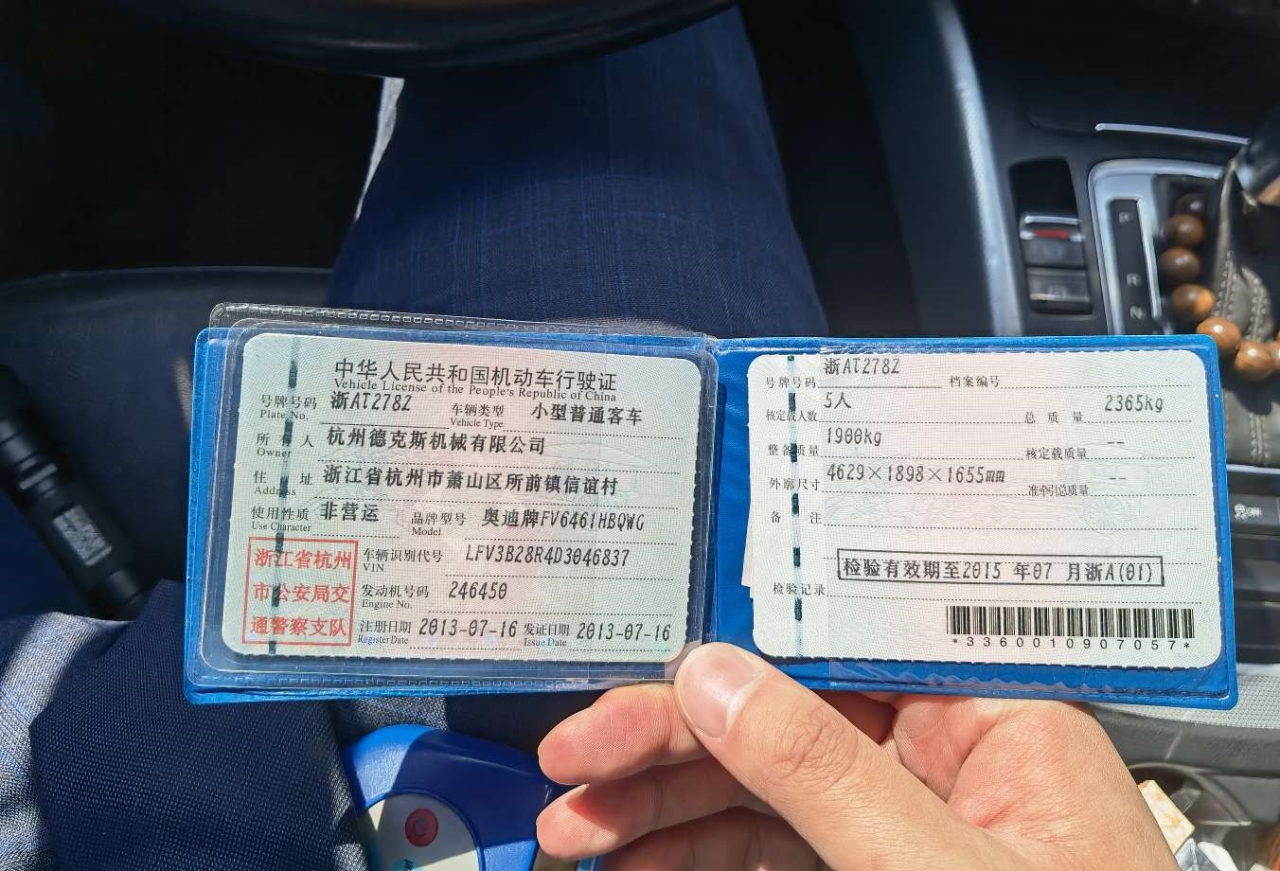 中华人民共和国机动车行驶证
Vehicle License of the People's Republic of China
号牌号码 浙AT2782 车辆类型 小型普通客车
Plate No. Vehicle Type
所有人 杭州德克斯机械有限公司
Owner
住址 浙江省杭州市萧山区所前镇信谊村
Address
使用性质 非营运 品牌型号 奥迪牌FV6461HBQWG
Use Character Model
浙江省杭州
市公安局交
通警察支队
车辆识别代号 LFV3B28R4D3046837
VIN
发动机号码 246450
Engine No.
注册日期 2013-07-16 发证日期 2013-07-16
Register Date Issue Date
号牌号码 浙AT2782 档案编号
核定载人数 5人 总质量 2365kg
整备质量 1900kg 核定载质量 --
外廓尺寸 4629×1898×1655mm 准牵引总质量 --
备注
检验有效期至2015 年07 月浙A(01)
检验记录
*3360010907057*
P
R
N